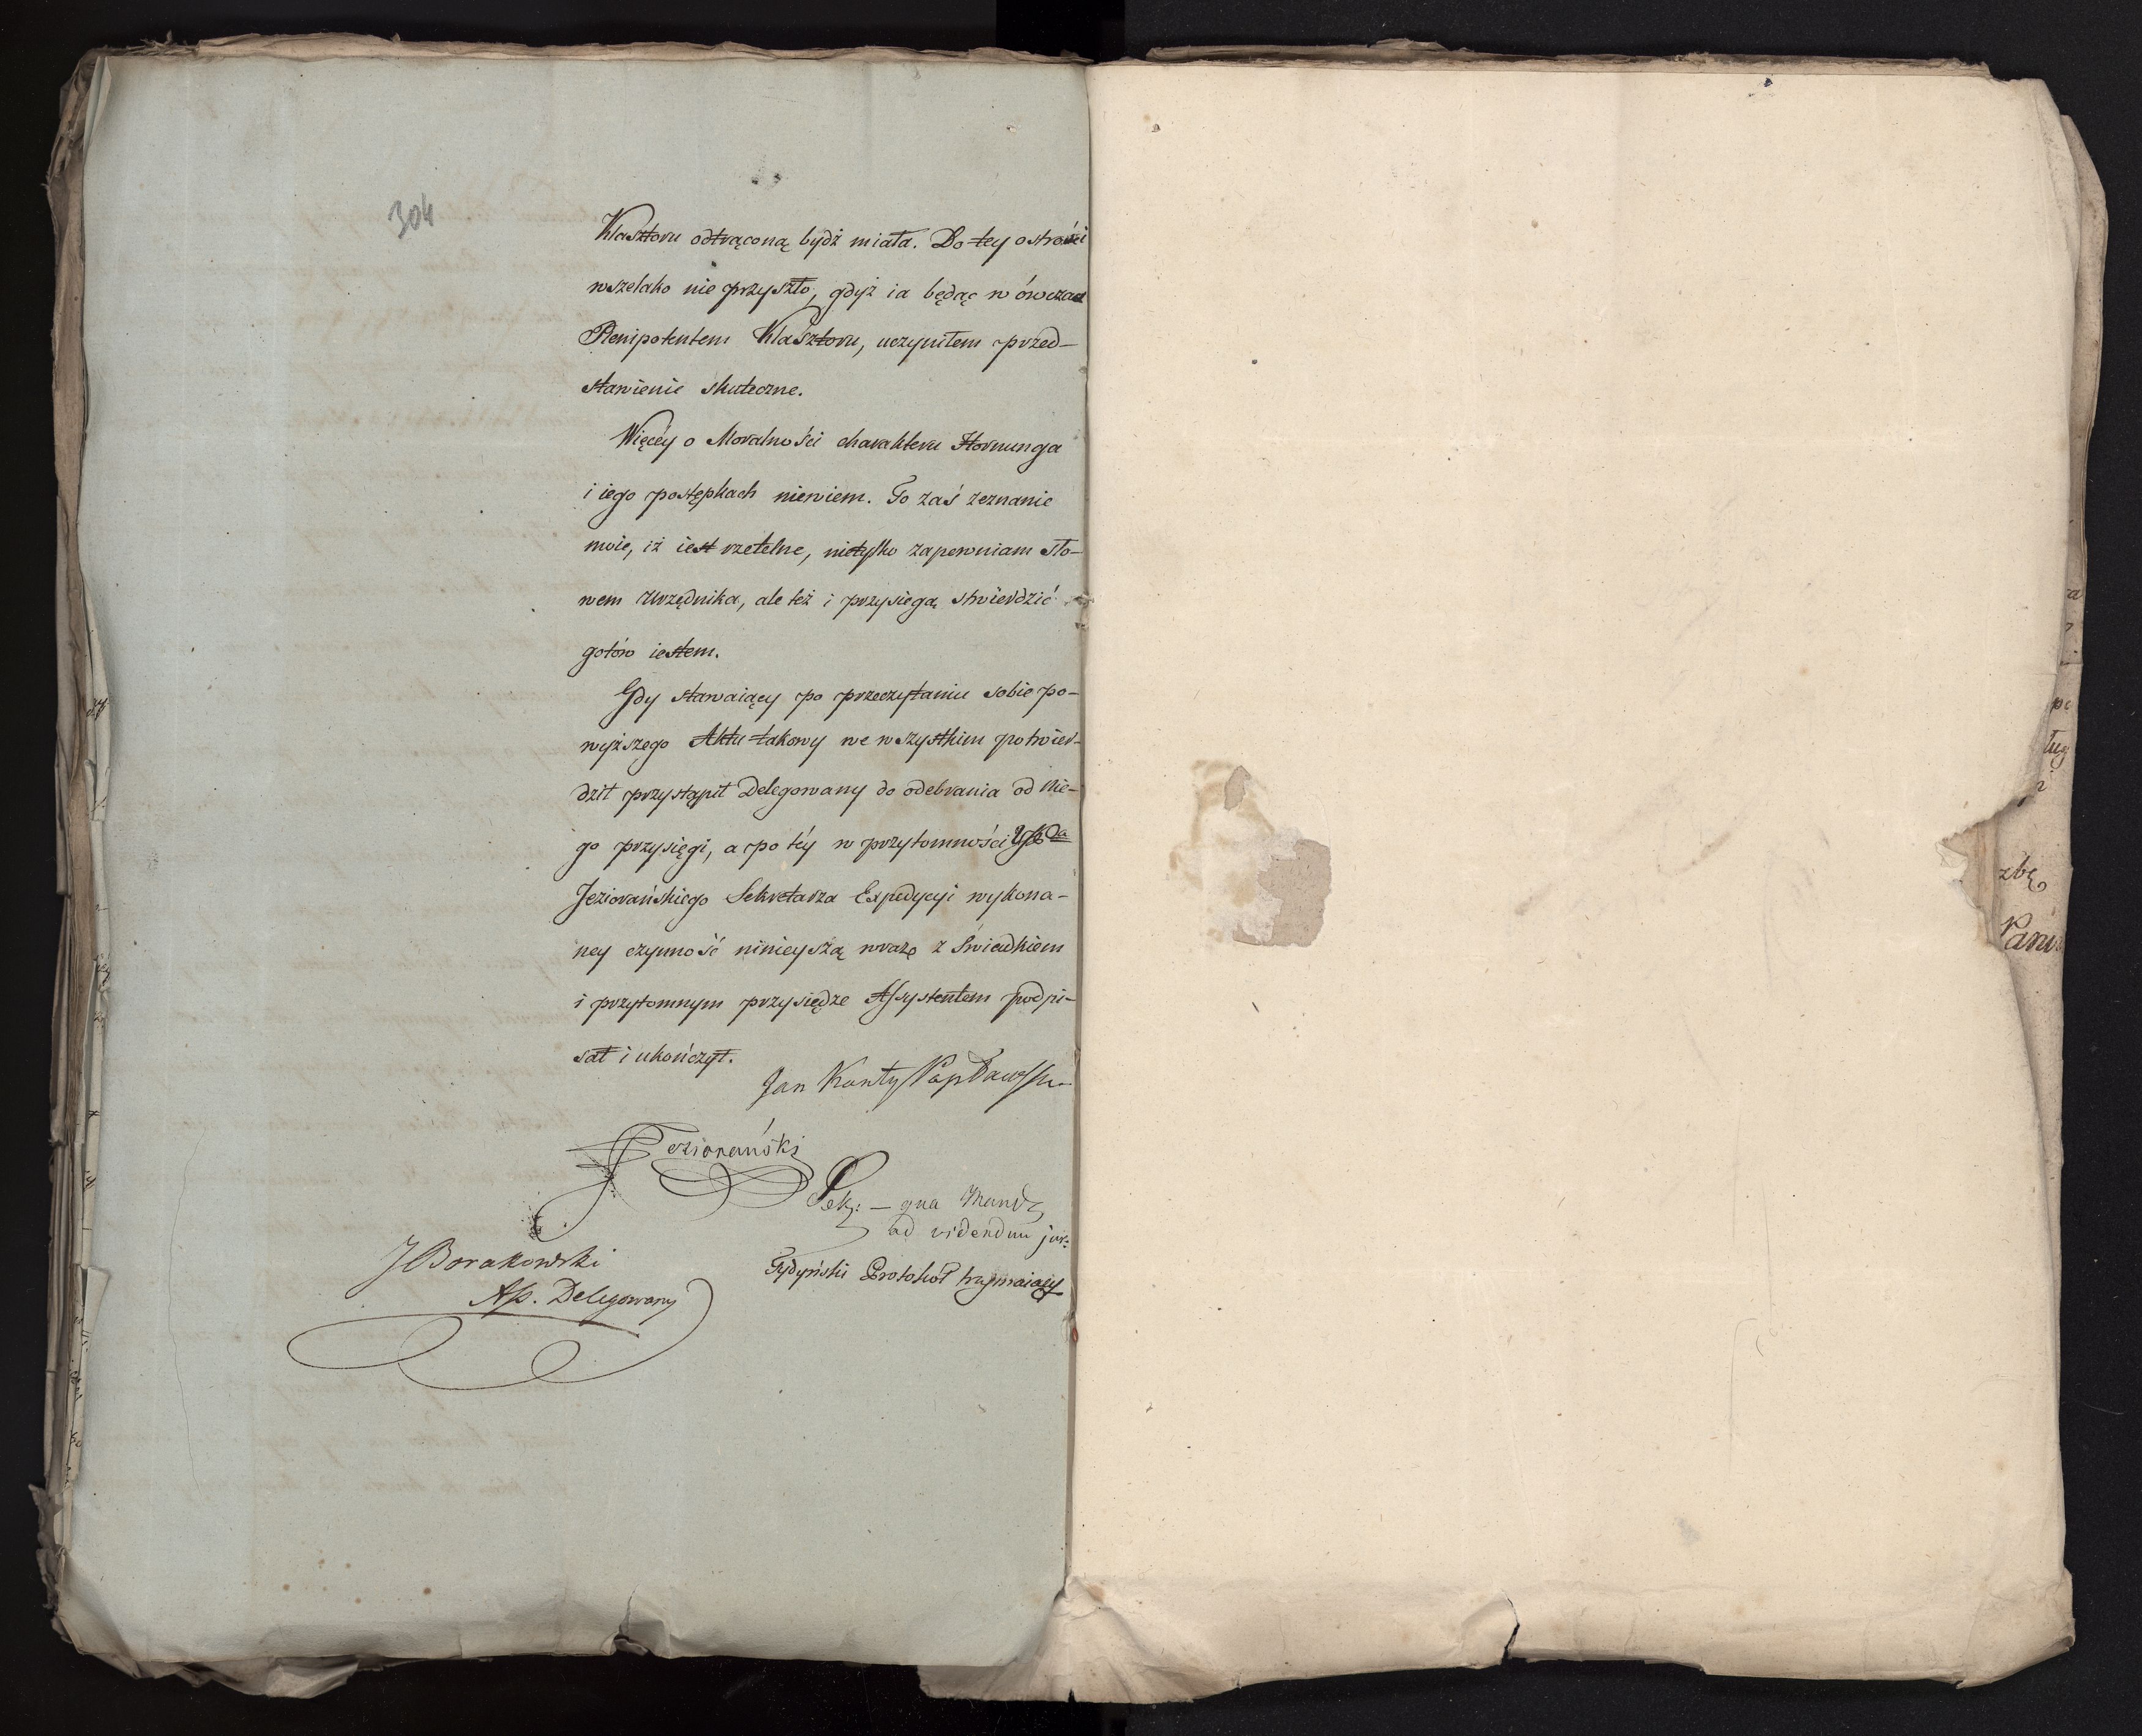 304
Klasztoru odtrąconą bydź miała. Do tey ostrości
wszelako nie przyszło, gdyż ia będąc w ówczas
Plenipotentem Klasztoru, uczyniłem przed-
stawienie skuteczne.
Więcéy o Moralności charakteru Hornunga
i iego postępkach niewiem. To zaś zeznanie
moie, iż iest rzetelne, nietylko zapewniam sło-
wem urzędnika, ale też i przysięgą stwierdzić
gotów iestem.
Gdy stawaiący po przeczytaniu sobie po-
wyższego Aktu takowy we wszystkim potwier-
dził przystąpił Delegowany do odebrania od nie-
go przysięgi, a po téy w przytomności
Jeziorańskiego Sekretarza Expedycyi wykona-
ney czynność ninieyszą wraz z Swiadkiem
i przytomnym przysiędze Assystentem podpi-
sał i ukończył.
Jan Kanty
Jeziorański
Sek: — qua
ad videndum jur:
J Borakowski
As. Delegowany
Protokół trzymaiący
zbę